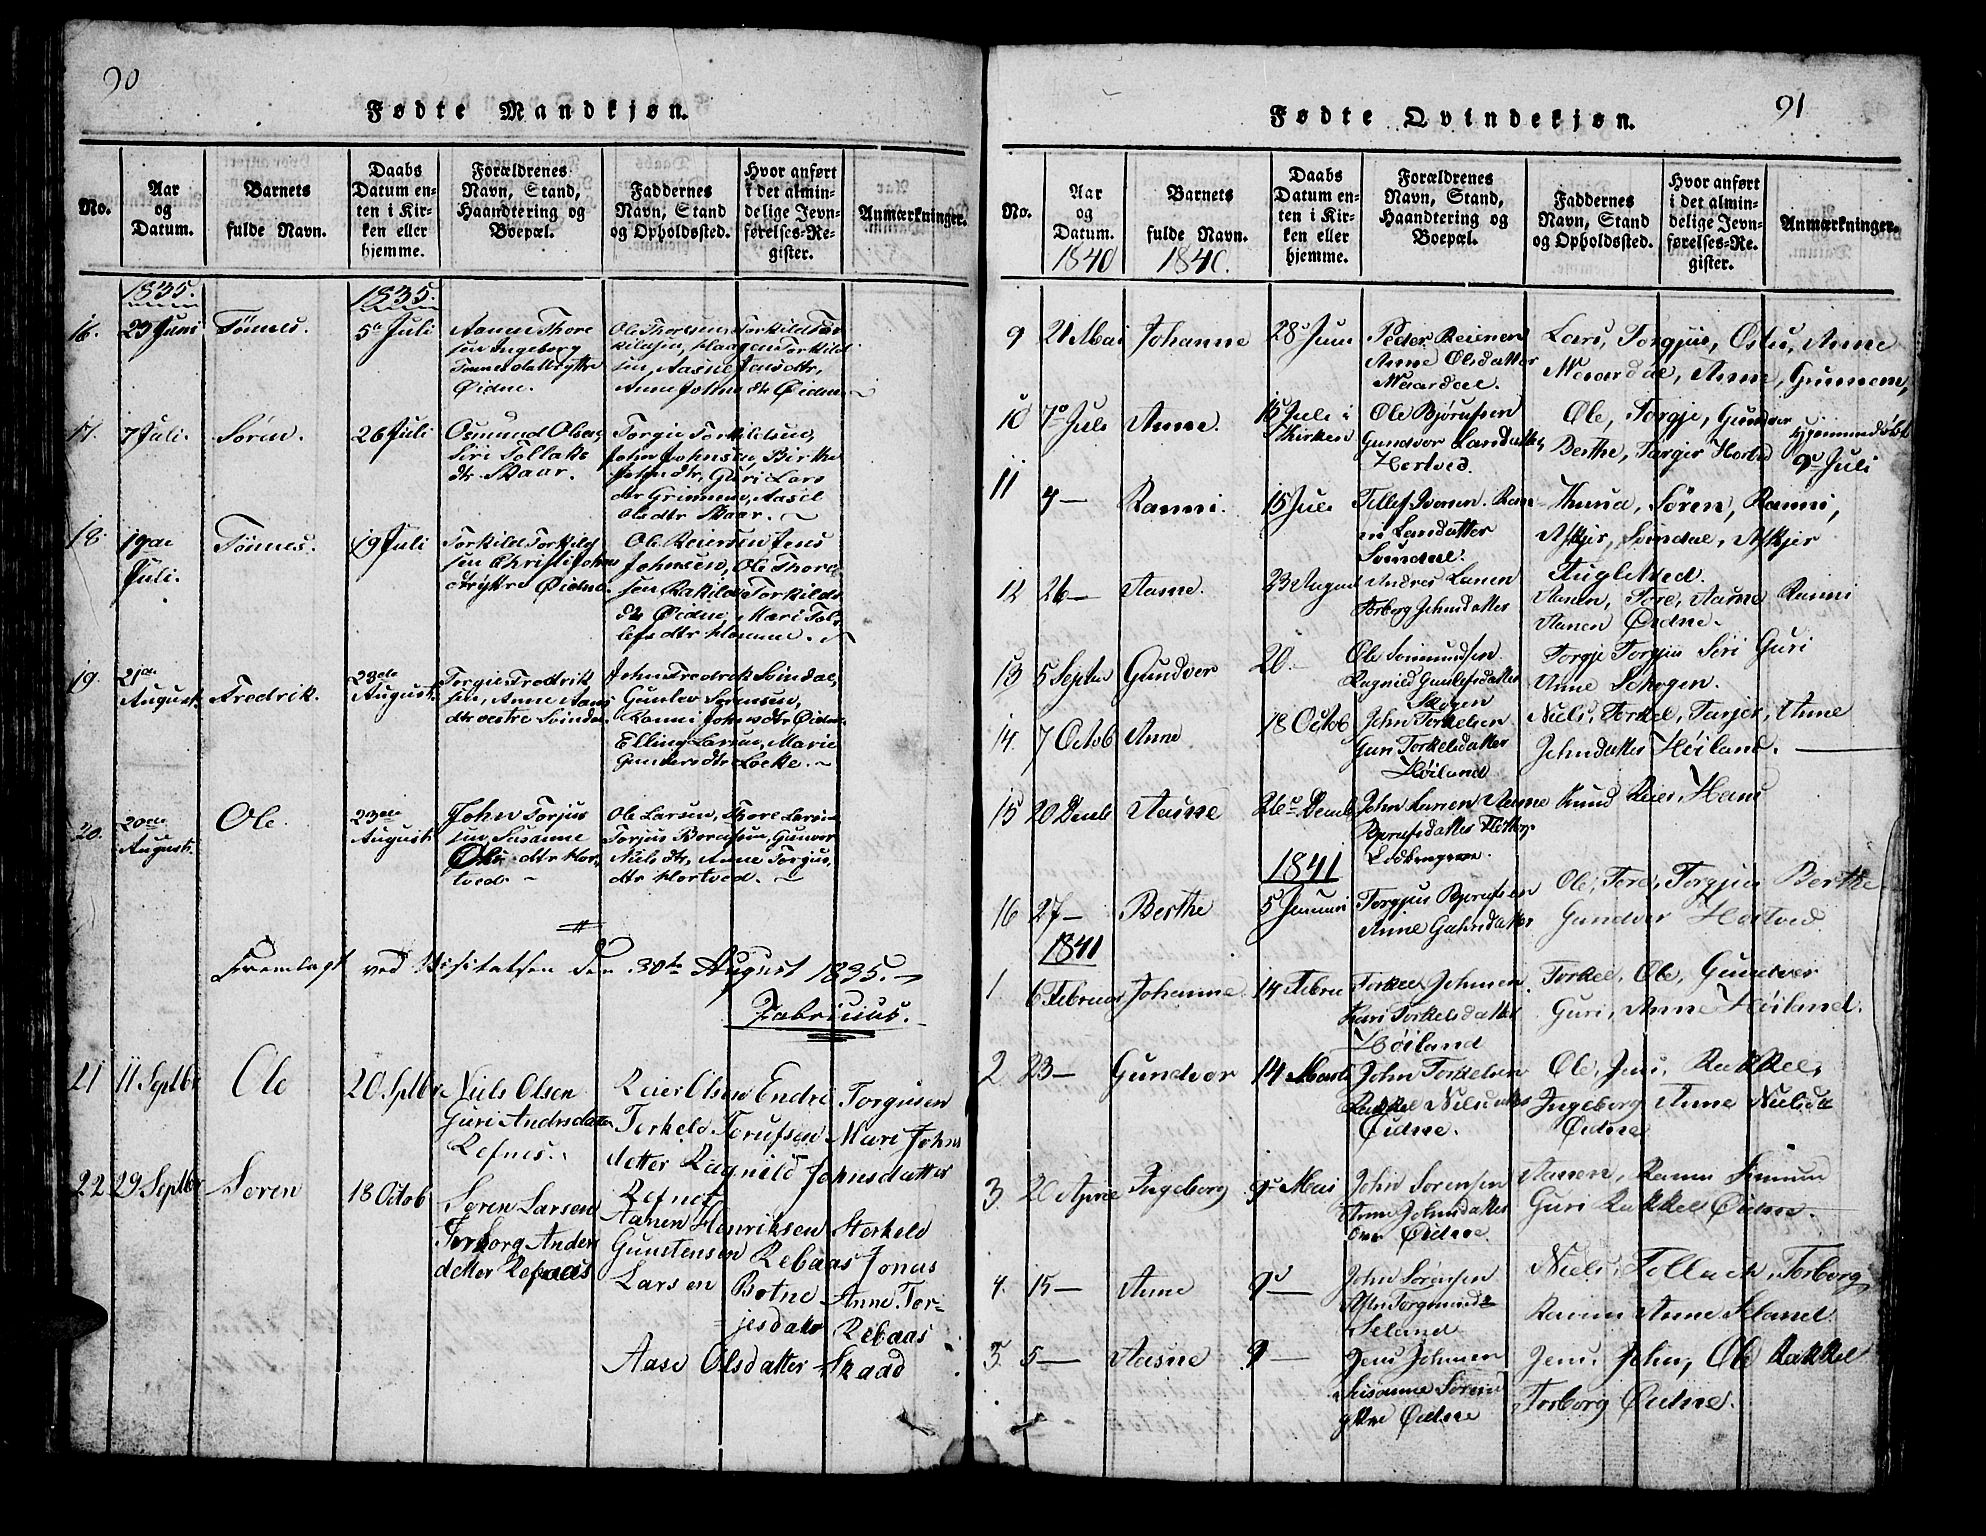 90
Fødte Mandkjøn.
No.
Aar
og
Datum.
Barnets
fulde Navn.
Daabs
Datum en-
ten i Kir-
ken eller
hjemme.
Forældrenes
Navn, Stand,
Haandtering og
Boepæl.
Faddernes
Navn, Stand
og Opholdssted.
Hvor anført
i det almin-
delige Jevn-
førelses-Re-
gister.
Anmærkninger.
1835.
1835.
16.
23 Juni
Tönnes.
5te Juli
Aanen Thore
sen Ingeborg
Tönnesdatter
Øidne.
Ole Thoresen, Torkild Tor
kildsen, Haagen Torkild
sen, Aasne Jensdtr,
Anne Johnsdtr Øidne
17.
7 Juli.
Sören.
26 Juli
Osmund Olsen,
Siri Tollaks
dtr. Skaar.
Torgie Torkildsen,
John Johnsen, Birthe
Johndtr, Guri Lars
dtr Grimmen, Aasil
Olsdtr Skaar.
18.
19de
Juli.
Tönnes.
19 Juli
Torkild Torkild
sen Christi John
dtr yttre Øidne
Ole Reiersen Jens
Johnsen, Ole Thore
sen Rakild Torkilds
dtr Øidne, Mari Tol
lefsdtr Homme.
19.
21de
August
Fredrik.
23de
August
Torgie Fredrik
sen, Anne Aans
dtr vestre Svindal
John Fredrik Svindal,
Gunlev Sørensen,
Ranni Johnsdtr, Øidne
Elling Larsen, Marie
Gundersdtr Løcke.
20.
20de
August.
Ole.
23de
August
John Torjus
sen Susanne
Ols dtr Hor
tved.
Ole Larsen, Thore Larsen
Torjus Bernssen, Gunvor
Nielsdtr, Anne Torgus,
dtr Hortved.
Fremlagt ved Visitatsen den 30te August 1835.
Fabricius.
21
11 Septbr
Ole
20 Sptbr
Niels Olsen
Guri Andersdatter
Refnes.
Reier Olsen Endre Torgusen
Torkeld Torufsen Mari Johns
detter Ragnild Johnsdatter
Refnes
22
29 Septbr
Søren
18 Octob
Søren Larsen
Torborg Anders
detter Refnaas
Aanen Henriksen Storkeld
Gunstensen Rebaas Jonas
Larsen Botne Anne Tor-
jesdatr Rebaas
Aase Olsdatter Skaad
91
Fødte Qvindekjøn.
No.
Aar
og
Datum.
Barnets
fulde Navn.
Daabs
Datum en-
ten i Kir-
ken eller
hjemme.
Forældrenes
Navn, Stand,
Haandtering og
Boepæl.
Faddernes
Navn, Stand
og Opholdssted.
Hvor anført
i det almin-
delige Jevn-
førelses-Re-
gister.
Anmærkninger.
1840
1840.
9
21 Mai
Johanne
28 Juni
Peder Reiersen
Anne Olsdatter
Maardal.
Lars, Torgjus, Osten, Anne
Maardal, Anne, Gunnem,
10
7de Juli
Anne.
15 Juli i
Kirken
Ole Bjørufsen
Gundvor Larsdatter
Hortved.
Ole, Torgje, Gundvor
Berthe, Targer Horted
Hjemmedøbt
9de Juli
11
4 —
Ranni.
15 Juli
Tellef Iversen. Ran
ni Larsdatter
Svindal.
Knud, Søren, Ranni,
Askjer, Svindal, Askjer
Fugletved.
12
26 —
Aasne.
23 August
Andres Larsen
Torborg Johnsdatter
Aanen, Tore, Aasne Ranni
Aanen Øidne.
13
5 Septer
Gundvor
20.
Ole Sormundsen
Ragnild Gunlefsdatter
Skogen
Torgje Torgjus Siri Guri
Anne Schogen.
14.
7 Octob
Anne
18 Octob
John Torkelsen
Guri Torkelsdatter
Høiland
Niels, Torkel, Tarjer, Anne
Johnsdatter Høiland.
15
20 Decmb
Aasne
26de Decmb
John Larsen Aasne
Bjorufsdatter
Knud Reier, Hans
1841
16
27 —
Berthe
5 Januari
Torgjus Bjorufsen
Anne Gahrsdatter
Ole, Tore, Torgjus Berthe
Gundvor Hortved
1841
1
6 Februar
Johanne
14 Febru
Torkel Johnsen.
Kari Torkelsdatter
Høiland
Torkel, Ole, Gundver
Guri, Anne Høiland.
2
23 —
Gundvor
14 Marts
John Torkelsen
Rakkel Nilsdatter
Øidne.
Ole, Jens, Rakkel,
Ingeborg Anne Nielsdtr
Øidne
3.
20 April
Ingeborg
9de Mai
John Sørensen
Anne Johnsdatter
over Øidne
Aanen, Ranni Simun
Guri Rakkel Øidne.
4.
15 —
Anne
9de —
John Sørensen
Seland
Niels, Tellack, Torborg
Ranni Anne Seland
5.
5 —
Aasne
9 —
Jens Johnsen
Susanne Sørens
yttre Øidne
Jens, John, Ole Rakkel
Torborg Øidne.